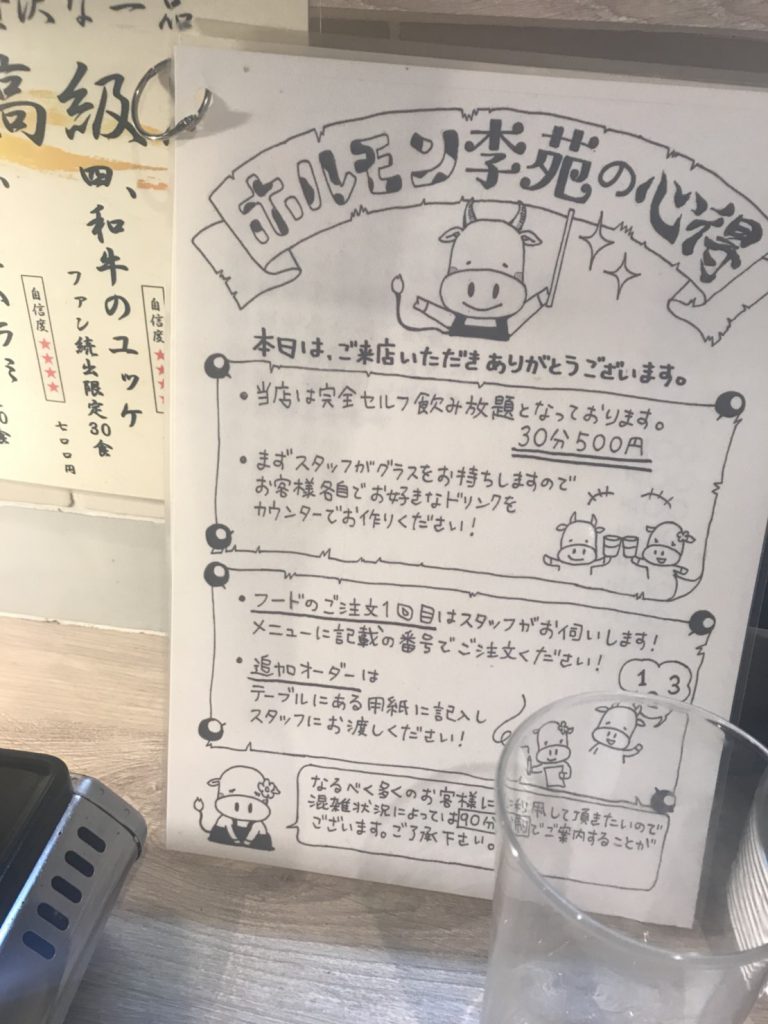 沢な一品
高級
四、和牛のユッケ
ファン続出限定30食
自信度★★★★
七〇〇円
自信度★★
ホルモン李苑の心得
本日は、ご来店いただきありがとうございます。
・当店は完全セルフ飲み放題となっております。
30分500円
・まずスタッフがグラスをお持ちしますので
お客様各自でお好きなドリンクを
カウンターでお作りください!
・フードのご注文1回目はスタッフがお伺いします!
メニューに記載の番号でご注文ください!
・追加オーダーは
テーブルにある用紙に記入し
スタッフにお渡しください!
1 3
なるべく多くのお客様に利用して頂きたいので
混雑状況によっては90分制でご案内することが
ございます。ご了承下さい。